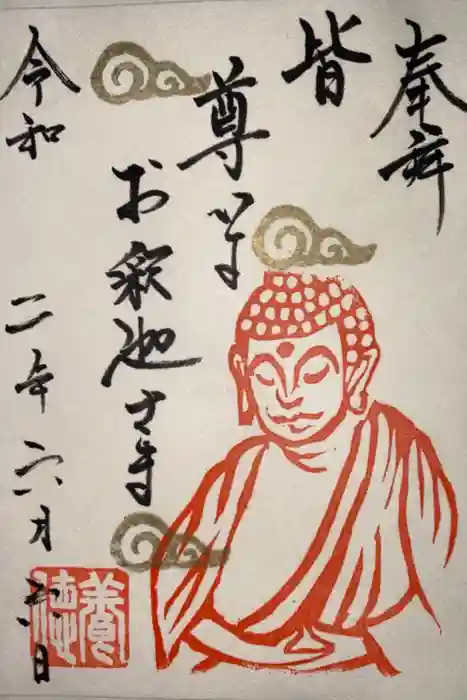 奉拝
皆
尊いよ
お釈迦さま
令和二年六月日
養徳